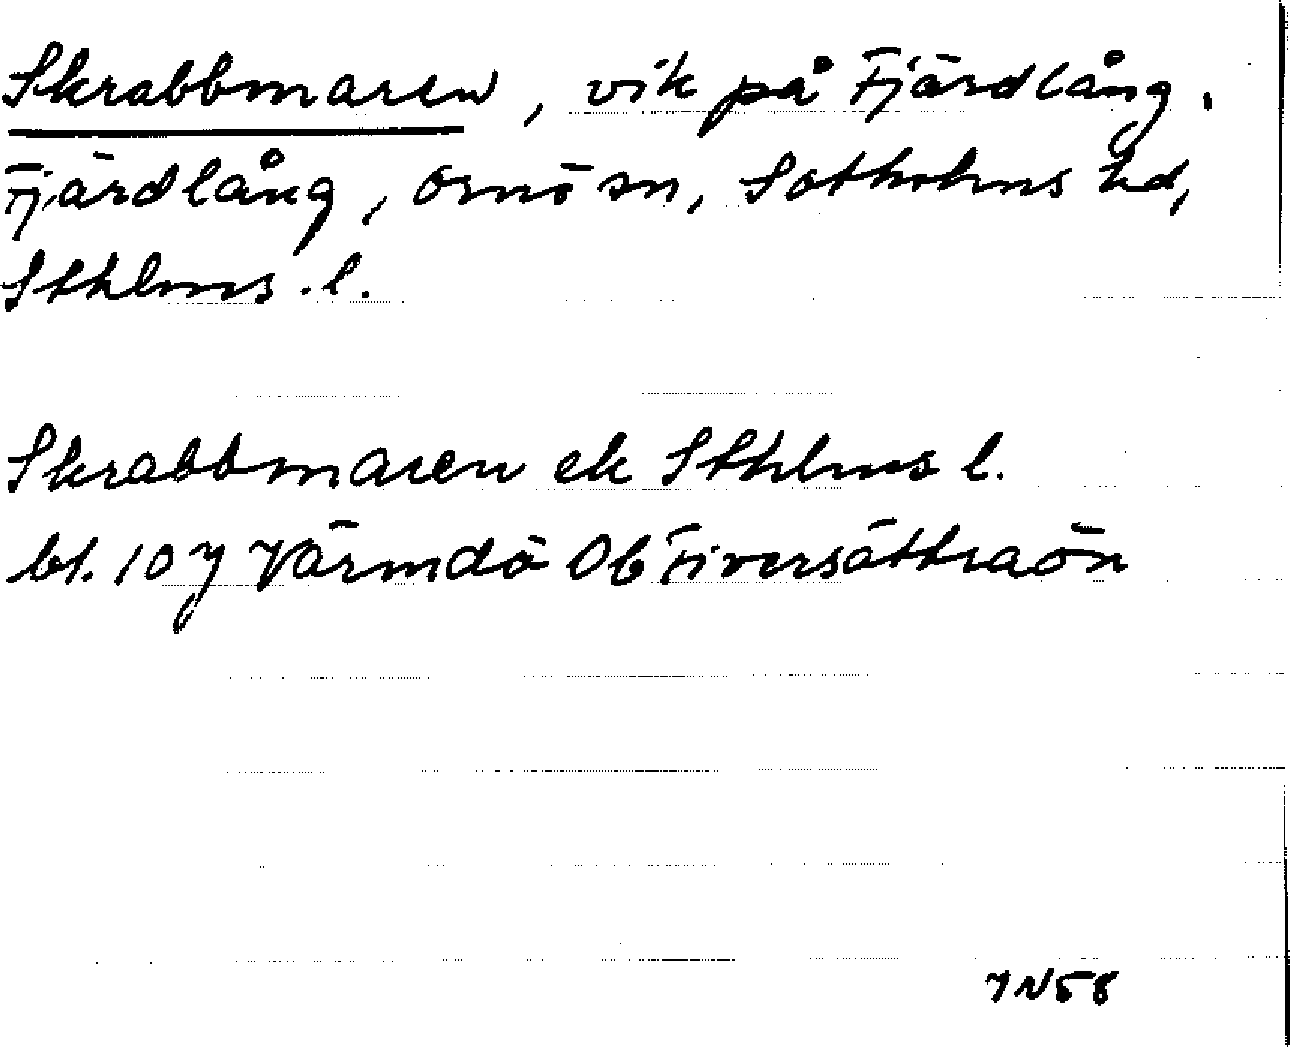 Skrabbmaren, vik på Fjärdlång.
Fjärdlång, Ornö sn, Sotholms hd,
Sthlms.l.
Skrabbmaren ek Sthlms l.
bl. 10 y Värmdö Ob Fiversättraön
YN58